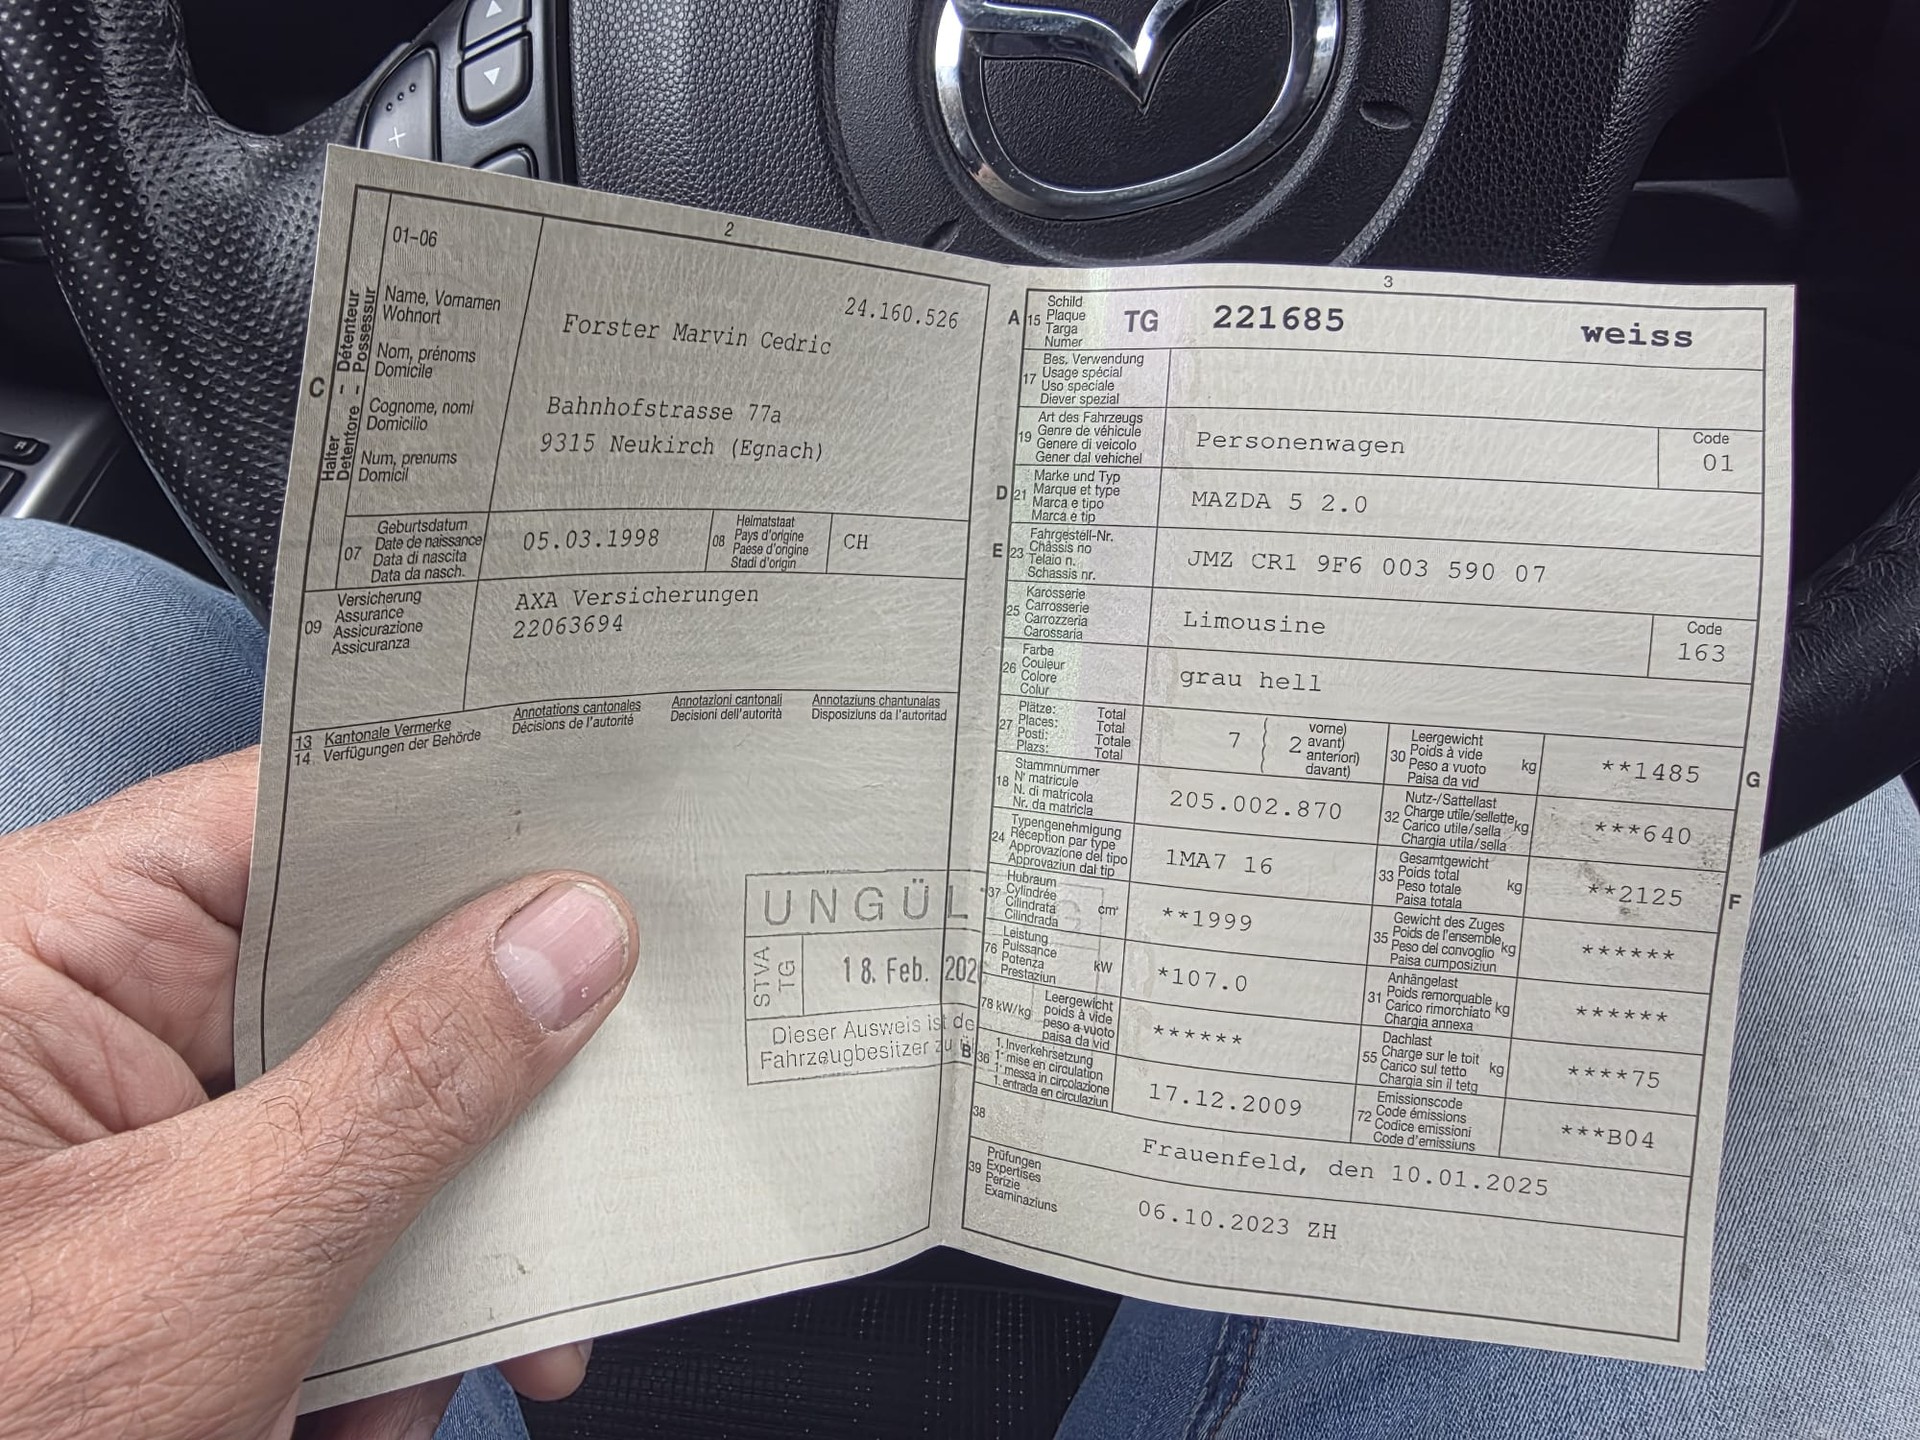 2
01-06
Halter - Détenteur
Detentore - Possessur
C
Name, Vornamen
Wohnort
Nom, prénoms
Domicile
Cognome, nomi
Domicilio
Num, prenums
Domicil
24.160.526
Forster Marvin Cedric
Bahnhofstrasse 77a
9315 Neukirch (Egnach)
07
Geburtsdatum
Date de naissance
Data di nascita
Data da nasch.
05.03.1998
08
Heimatstaat
Pays d'origine
Paese d'origine
Stadi d'origin
CH
09
Versicherung
Assurance
Assicurazione
Assicuranza
AXA Versicherungen
22063694
13 Kantonale Vermerke
14 Verfügungen der Behörde
Annotations cantonales
Décisions de l'autorité
Annotazioni cantonali
Decisioni dell'autorità
Annotaziuns chantunalas
Disposiziuns da l'autoritad
UNGÜL
STVA
TG
18. Feb. 202
Dieser Ausweis ist
Fahrzeugbesitzer
3
A 15
Schild
Plaque
Targa
Numer
TG 221685 weiss
17
Bes. Verwendung
Usage spécial
Uso speciale
Diever spezial
19
Art des Fahrzeugs
Genre de véhicule
Genere di veicolo
Gener dal vehichel
Personenwagen
Code
01
D 21
Marke und Typ
Marque et type
Marca e tipo
Marca e tip
MAZDA 5 2.0
E 23
Fahrgestell-Nr.
Châssis no
Telaio n.
Schassis nr.
JMZ CR1 9F6 003 590 07
25
Karosserie
Carrosserie
Carrozzeria
Carossaria
Limousine
Code
163
26
Farbe
Couleur
Colore
Colur
grau hell
27
Plätze: Total
Places: Total
Posti: Totale
Plazs: Total
7 { 2
vorne)
avant)
anteriori)
davant)
30
Leergewicht
Poids à vide
Peso a vuoto
Paisa da vid
kg
**1485
G
18
Stammnummer
N° matricule
N. di matricola
Nr. da matricla
205.002.870
32
Nutz-/Sattellast
Charge utile/sellette
Carico utile/sella
Chargia utila/sella
kg
***640
24
Typengenehmigung
Réception par type
Approvazione del tipo
Approvaziun dal tip
1MA7 16
33
Gesamtgewicht
Poids total
Peso totale
Paisa totala
kg
**2125
F
37
Hubraum
Cylindrée
Cilindrata
Cilindrada
cm³
**1999
35
Gewicht des Zuges
Poids de l'ensemble
Peso del convoglio
Paisa cumposiziun
kg
******
76
Leistung
Puissance
Potenza
Prestaziun
kW
*107.0
31
Anhängelast
Poids remorquable
Carico rimorchiato
Chargia annexa
kg
******
78 kW/kg
Leergewicht
poids à vide
peso a vuoto
paisa da vid
******
55
Dachlast
Charge sur le toit
Carico sul tetto
Chargia sin il tetg
kg
****75
B 36
1. Inverkehrsetzung
1e mise en circulation
1a messa in circolazione
1. entrada en circulaziun
17.12.2009
72
Emissionscode
Code émissions
Codice emissioni
Code d'emissiuns
***B04
38
Frauenfeld, den 10.01.2025
39
Prüfungen
Expertises
Perizie
Examinaziuns
06.10.2023 ZH